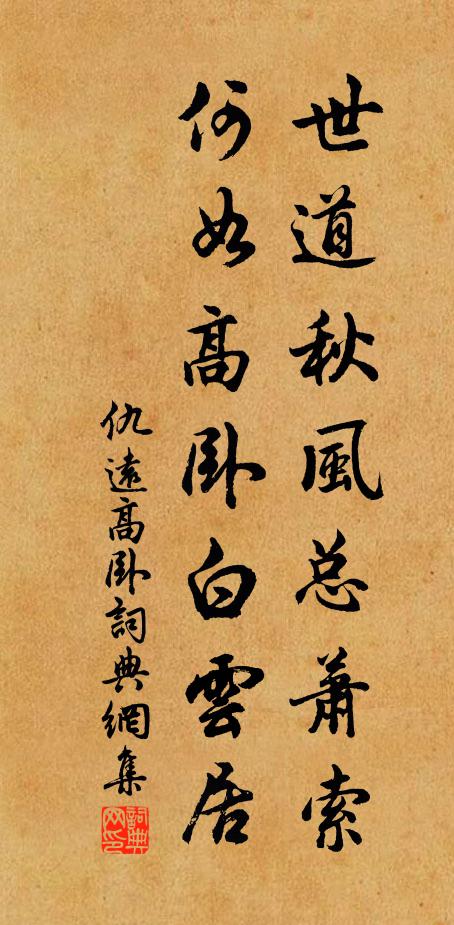 世道秋風总蕭索
何如高卧白雲居
仇遠高卧詞典網集
詞典网印